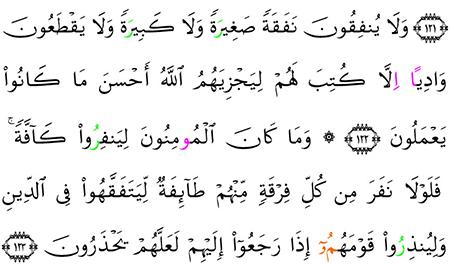 ﴿١٢١﴾ وَلَا يُنفِقُونَ نَفَقَةٗ صَغِيرَةٗ وَلَا كَبِيرَةٗ وَلَا يَقْطَعُونَ
وَادِيًا اِلَّا كُتِبَ لَهُمْ لِيَجْزِيَهُمُ اللَّهُ أَحْسَنَ مَا كَانُواْ
يَعْمَلُونَ ﴿١٢٢﴾ ۞ وَمَا كَانَ الْمُومِنُونَ لِيَنفِرُواْ كَآفَّةٗۚ
فَلَوْلَا نَفَرَ مِن كُلِّ فِرْقَةٖ مِّنْهُمْ طَآئِفَةٞ لِّيَتَفَقَّهُواْ فِي الدِّينِ
وَلِيُنذِرُواْ قَوْمَهُمُۥٓ إِذَا رَجَعُوٓاْ إِلَيْهِمْ لَعَلَّهُمْ يَحْذَرُونَ ﴿١٢٣﴾